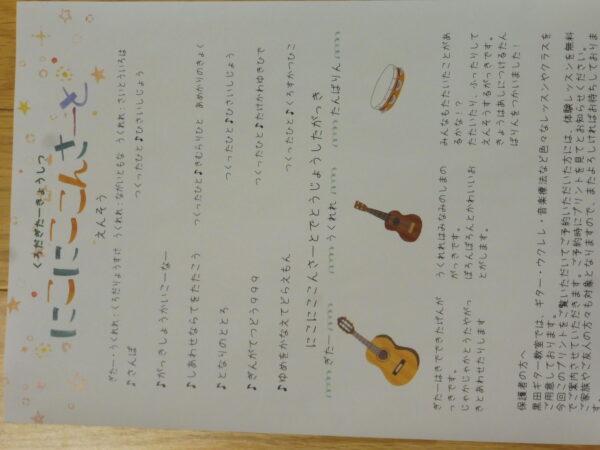 くろだぎたーきょうしつ
にこにここんさーと
えんそう
ぎたー・うくれれ：くろだりょうすけ　うくれれ：ながいともな　うくれれ：さいとういろは
♪さんぽ　つくったひと♪ひさいしじょう
♪がっきしょうかいこーなー
♪しあわせならてをたたこう　つくったひと♪きむらりひと　あめりかのきょく
♪となりのととろ　つくったひと♪ひさいしじょう
♪ぎんがてつどう999　つくったひと♪たけかわゆきひで
♪ゆめをかなえてどらえもん　つくったひと♪くろすかつひこ
にこにここんさーとでとうじょうしたがっき
ぎたー
うくれれ
たんばりん
ぎたーはきでできたげんが
っきです。
じゃかじゃかとうたやがっ
きとあわせたりします
うくれれはみなみのしまの
がっきです。
ぽろんぽろんとかわいいお
とがします。
みんなもたたいたことがあ
るかな！？
たたいたり、ふったりして
えんそうするがっきです。
きょうはあしにつけるたん
ばりんをつかいました！
保護者の方へ
黒田ギター教室では、ギター・ウクレレ・音楽療法など色々なレッスンやクラスを
ご用意しております。
今回このプリントをご覧いただいてご予約いただいた方には、体験レッスンを無料
でご案内させていただきます。ご予約時にプリントを見てとお知らせください。
ご家族やご友人の方々も対象となりますので、またよろしければお待ちしておりま
す。